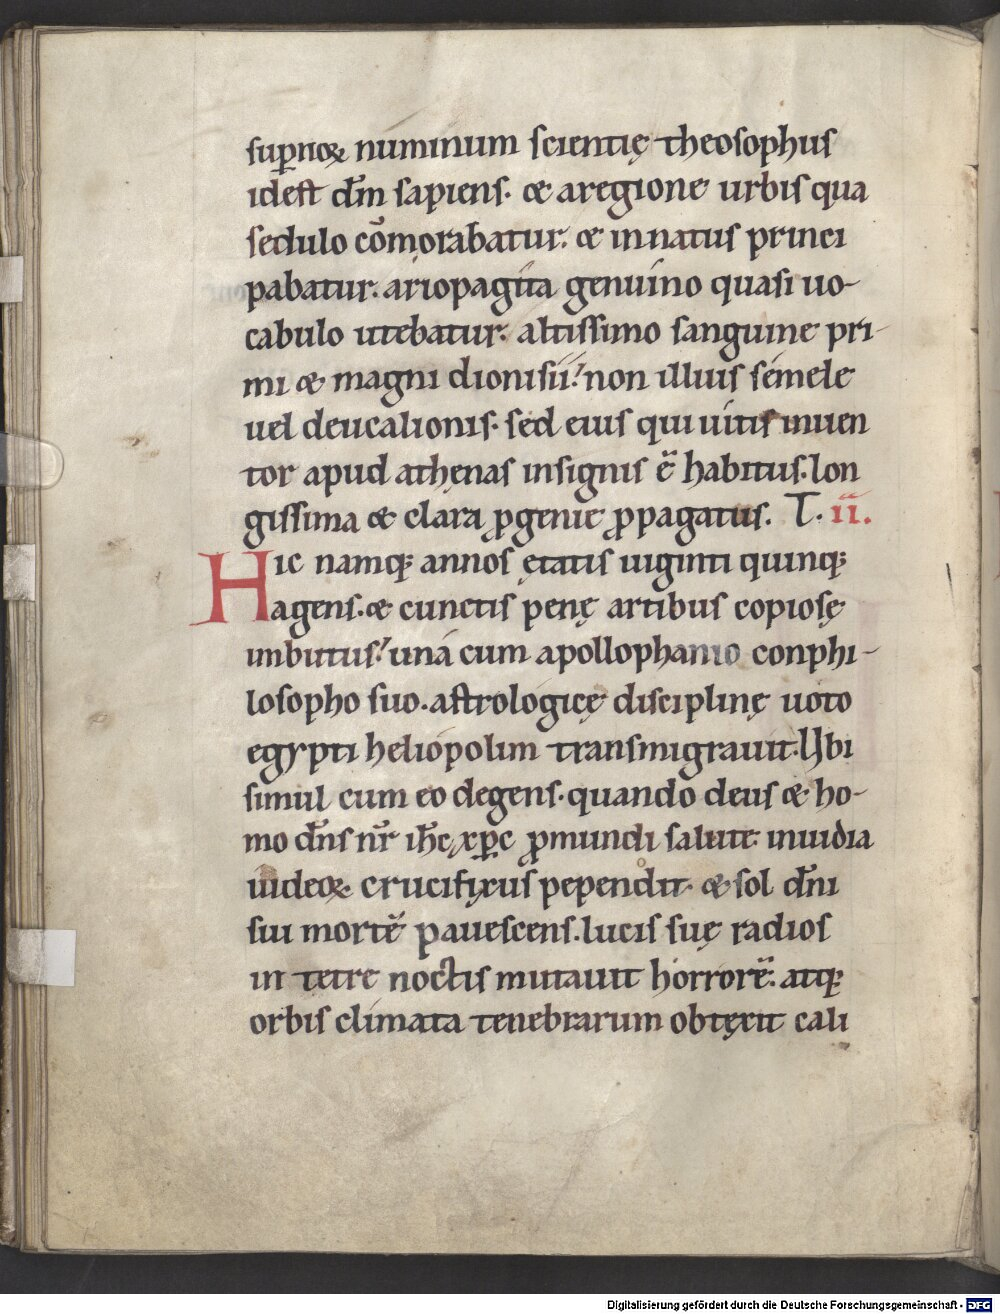 sup̱nor̨ꝝ numinum scientię theosophus
idest dm̄ sapiens. & aregione urbis qua
sedulo cōmorabatur. & innatus princi
pabatur. ariopagita genuino quasi uo-
cabulo utebatur. altissimo sanguine pri-
mi & magni dionisii. non illius semele
uel deucalionis. sed eius qui uitis inuen
tor apud athenas insignis ē habitus. lon
gissima & clara ꝓgenie ꝓpagatus. T. ii.
Hic namq; annos ętatis uiginti quinq;
agens. & cunctis penę artibus copiosę
imbutus. una cum apollophanio conphi-
losopho suo. astrologicę disciplinę uoto
egypti heliopolim transmigrauit. Ubi
simul cum eo degens. quando deus & ho-
mo dn̄s nr̄ ih̄c xp̄c ꝓmundi salute inuidia
iudeoꝝ crucifixus pependit. & sol dn̄i
sui mortē pauescens. lucis suę radios
in tetre noctis mutauit horrorē. atq;
orbis climata tenebrarum obtexit cali
Digitalisierung gefördert durch die Deutsche Forschungsgemeinschaft - DFG